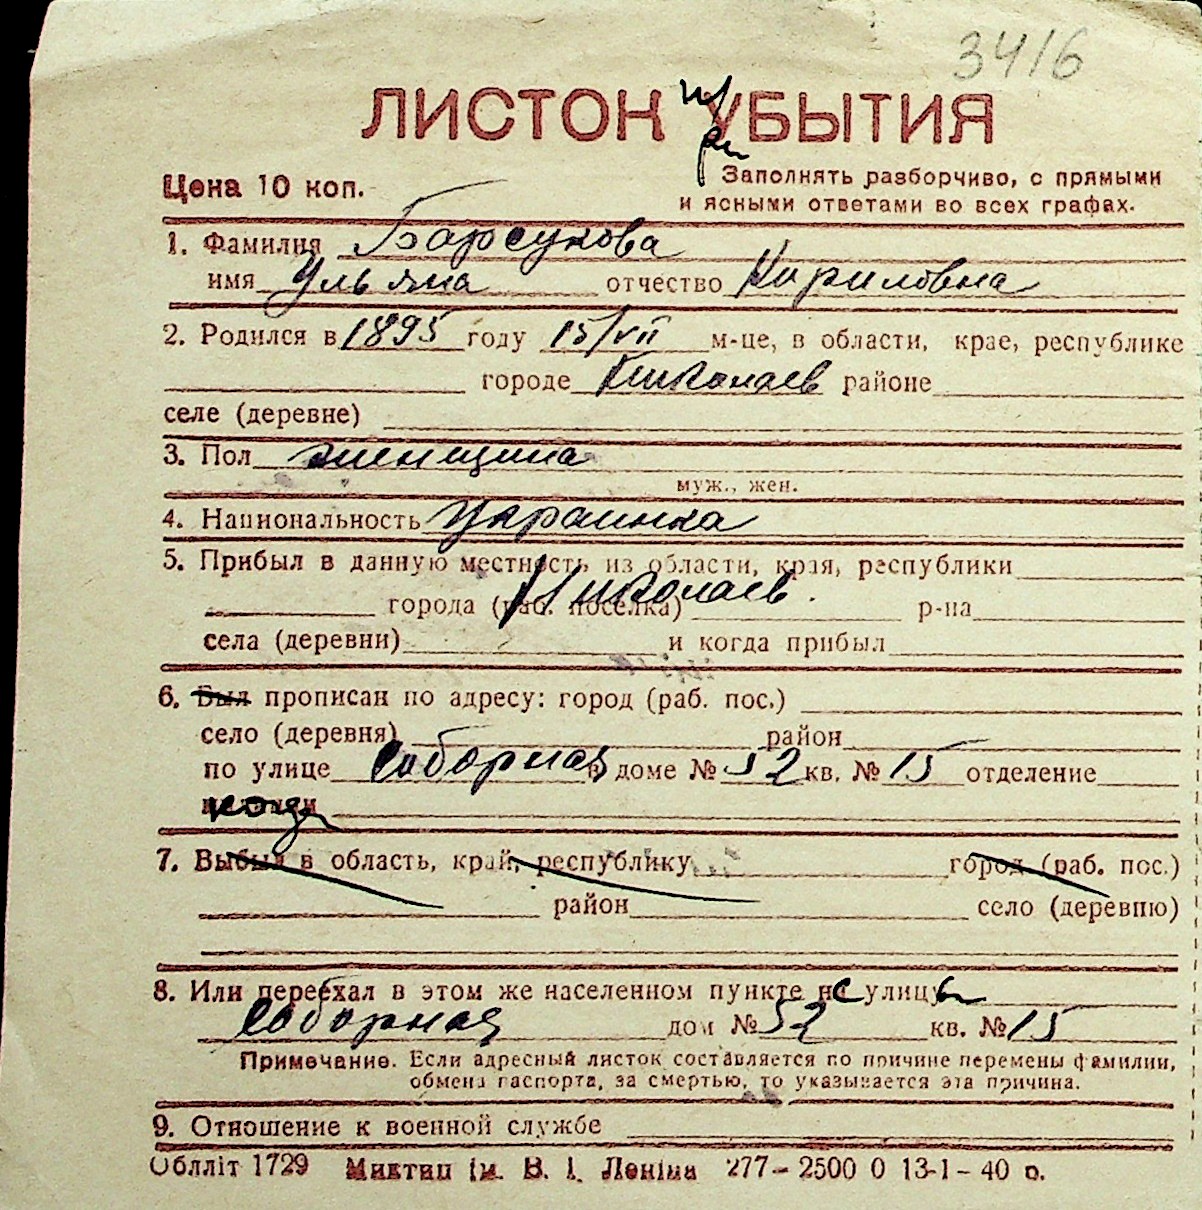 3416
ЛИСТОК УБЫТИЯ
при
Цена 10 коп.
Заполнять разборчиво, с прямыми
и ясными ответами во всех графах.
1. Фамилия Барсукова
имя Ульяна отчество Кириловна
2. Родился в 1895 году 15/VII м-це, в области, крае, республике
городе Николаев районе
селе (деревне)
3. Пол женщина
муж., жен.
4. Национальность Украинка
5. Прибыл в данную местность из области, края, республики
города (раб. поселка) Николаев. р-на
села (деревни) и когда прибыл
6. Был прописан по адресу: город (раб. пос.)
село (деревня) район
по улице Соборная в доме № 52 кв. № 15 отделение
7. Выбыл в область, край, республику город (раб. пос.)
район село (деревню)
8. Или переехал в этом же населенном пункте с улицы
Соборная дом № 52 кв. № 15
Примечание. Если адресный листок составляется по причине перемены фамилии,
обмена паспорта, за смертью, то указывается эта причина.
9. Отношение к военной службе
Облліт 1729 Миктип ім. В. І. Леніна 277–2500 0 13-1–40 р.